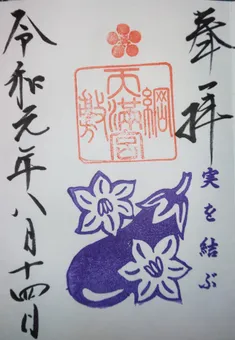 奉拝
実を結ぶ
綱敷天満宮
令和元年八月十四日